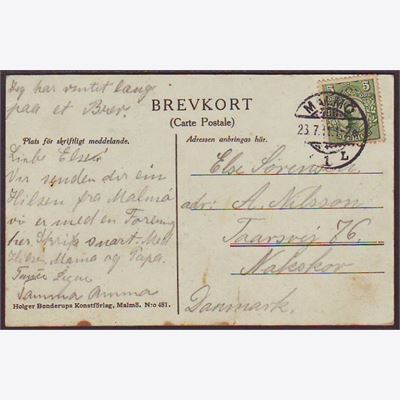 Jeg har ventet lang
paa et Brev.
BREVKORT
(Carte Postale)
5 5
MALMÖ
23.7.1
1 L
Plats för skriftligt meddelande.
Adressen anbringas här.
Kiære Else
Vi sender dir ein
Hilsen fra Malmö
vi er med en Forening
her. Skriv snart. Med
Hilsen, Mama og Papa.
Tante Signe
Else Sørensen
adr: A. Nilsson.
Taarsvej 76.
Nakskov
Danmark.
Holger Bonderups Konstförlag, Malmö. N:o 481.